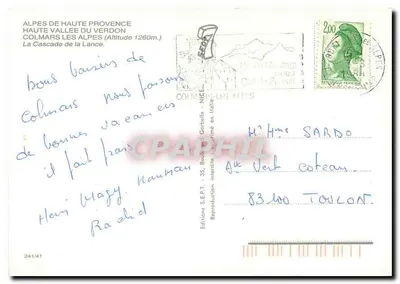 ALPES DE HAUTE PROVENCE
HAUTE VALLEE DU VERDON
COLMARS LES ALPES (Altitude 1260m.)
La Cascade de la Lance.
2,00
COLMARS-LES-ALPES
bons baisers de
Colmars nous passons
de bonnes vacances
il fait frais
Henri Magy
Rachid
CARTHAPHIL
Editions S.E.P.T. - 35,
Reproduction interdite
Mr Mme SARDO
Ave Vert Coteau
83100 TOULON
241/41